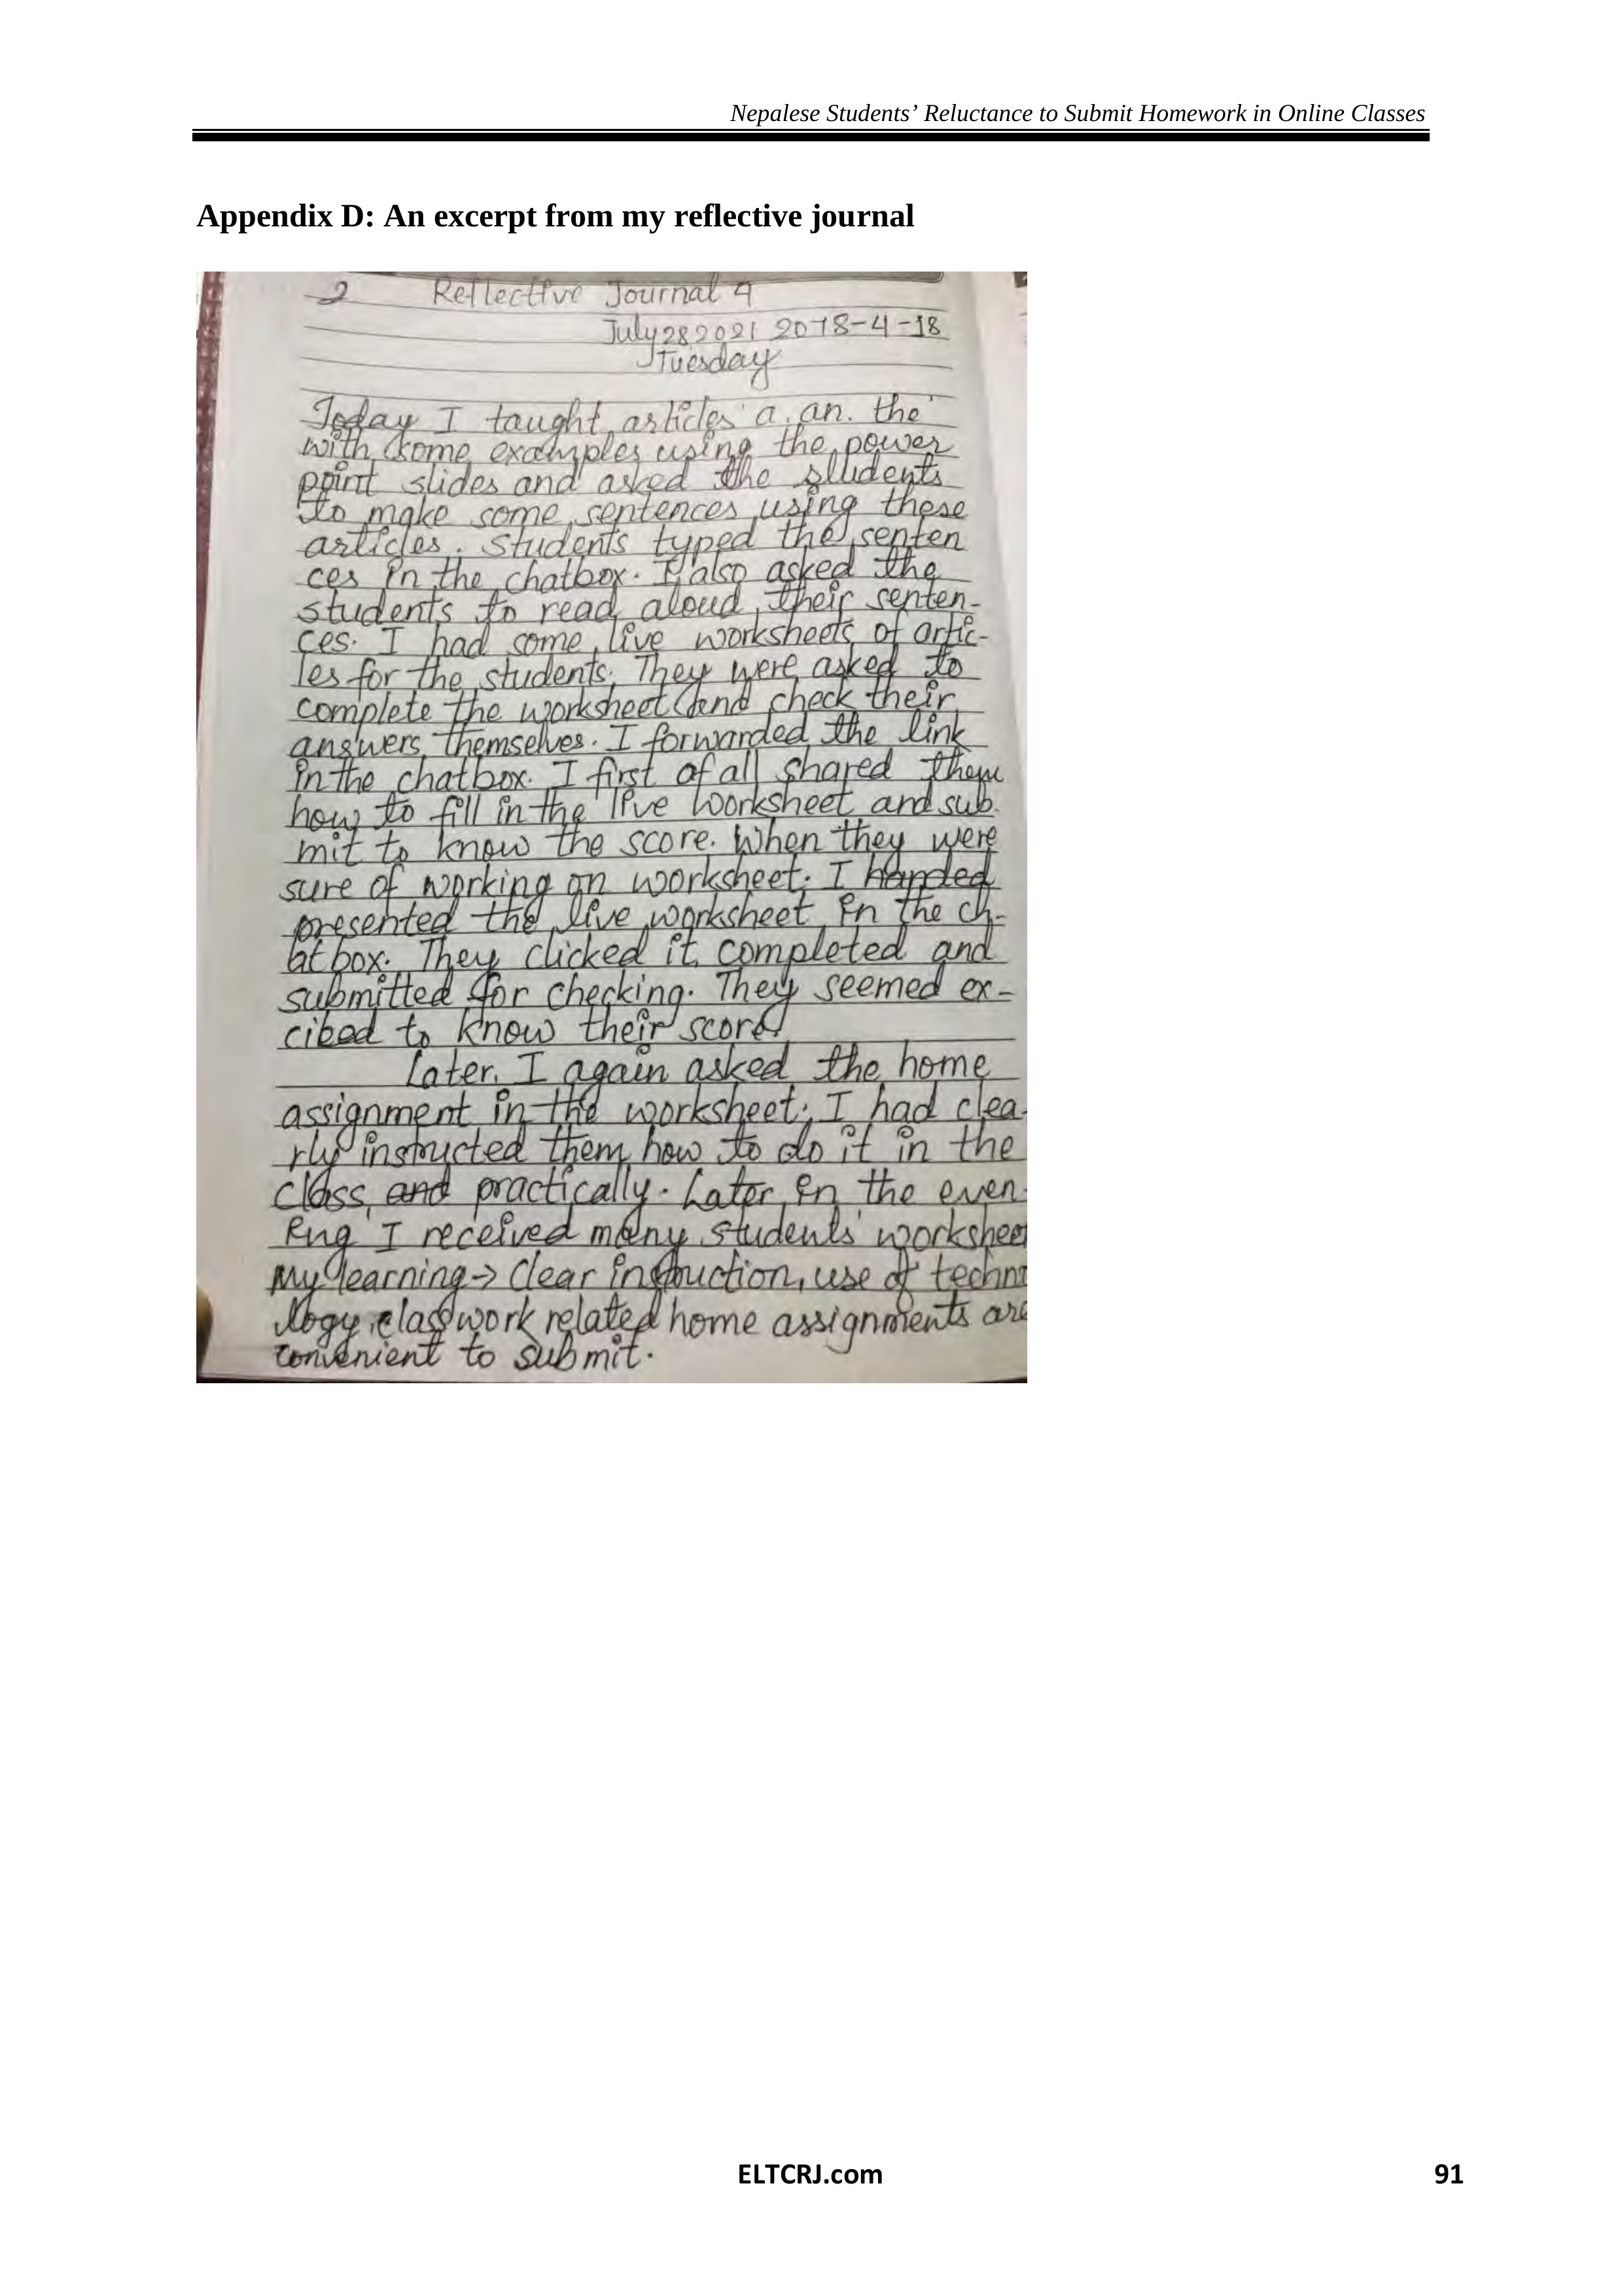 Nepalese Students’ Reluctance to Submit Homework in Online Classes
Appendix D: An excerpt from my reflective journal
2 Reflective Journal 4
July 28 2021 2078-4-18
Tuesday
Today I taught articles 'a. an. the'
with some examples using the power
point slides and asked the students
to make some sentences using these
articles. Students typed the senten
ces in the chatbox. I also asked the
students to read aloud their senten-
ces. I had some live worksheets of artic-
les for the students. They were asked to
complete the worksheet and check their
answers themselves. I forwarded the link
in the chatbox. I first of all shared them
how to fill in the live worksheet and sub-
mit to know the score. When they were
sure of working on worksheet. I handed
presented the live worksheet in the ch-
atbox. They clicked it, completed and
submitted for checking. They seemed ex-
cited to know their score.
Later, I again asked the home
assignment in the worksheet. I had clea-
rly instructed them how to do it in the
class, and practically. Later in the even-
ing I received many students' workshee
My learning → Clear instruction, use of techno
logy, classwork related home assignments are
convenient to submit.
ELTCRJ.com 91